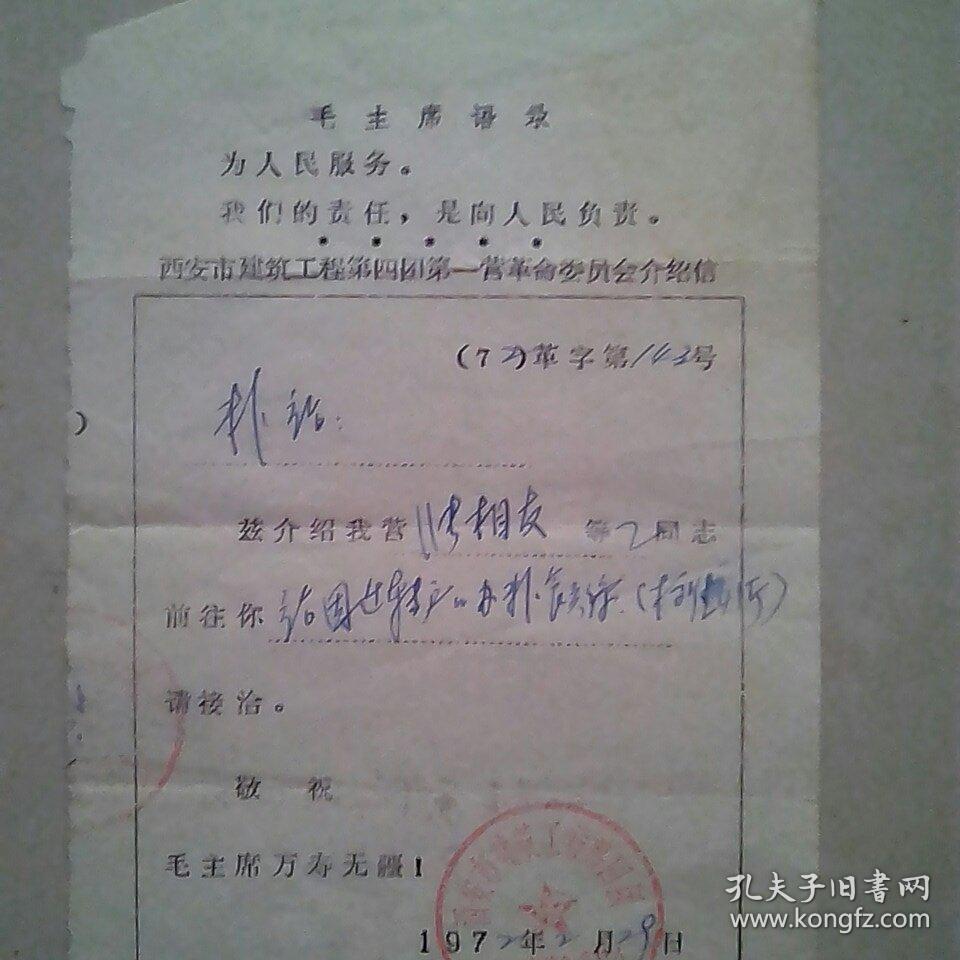 毛主席语录
为人民服务。
我们的责任，是向人民负责。
西安市建筑工程第四团第一营革命委员会介绍信
(72)革字第142号
)
兹介绍我营 张相友 等2同志
前往你
请接洽。
敬祝
毛主席万寿无疆!
西安市建筑工程第四团
1972年2月29日
孔夫子旧书网
www.kongfz.com